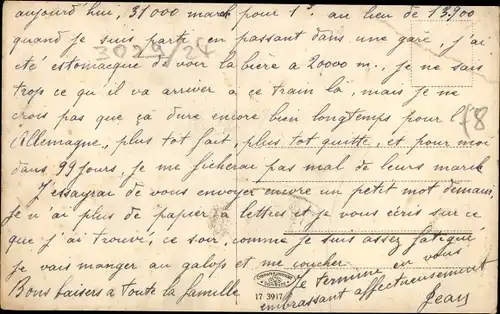 aujourd'hui, 31000 marck pour 1$ au lieu de 13.900
quand je suis parti en passant dans une gare, j'ai
3029/24
été estomacqué de voir la bière à 20000 m., je ne sais
trop ce qu'il va arriver à ce train là, mais je ne
78
crois pas que çà dure encore bien longtemps pour l'
Allemagne, plus tot fait, plus tot quitte, et pour moi
dans 99 jours, je me ficherai pas mal de leurs marck
J'essayrai de vous envoyer encore un petit mot demain,
Je n'ai plus de papier à lettres et je vous écris sur ce
que j'ai trouvé, ce soir, comme je suis assez fatigué
je vais manger au galop et me coucher.
Je termine en vous
Bons baisers à toute la famille
embrassant affectueusement
17 3917
Jean